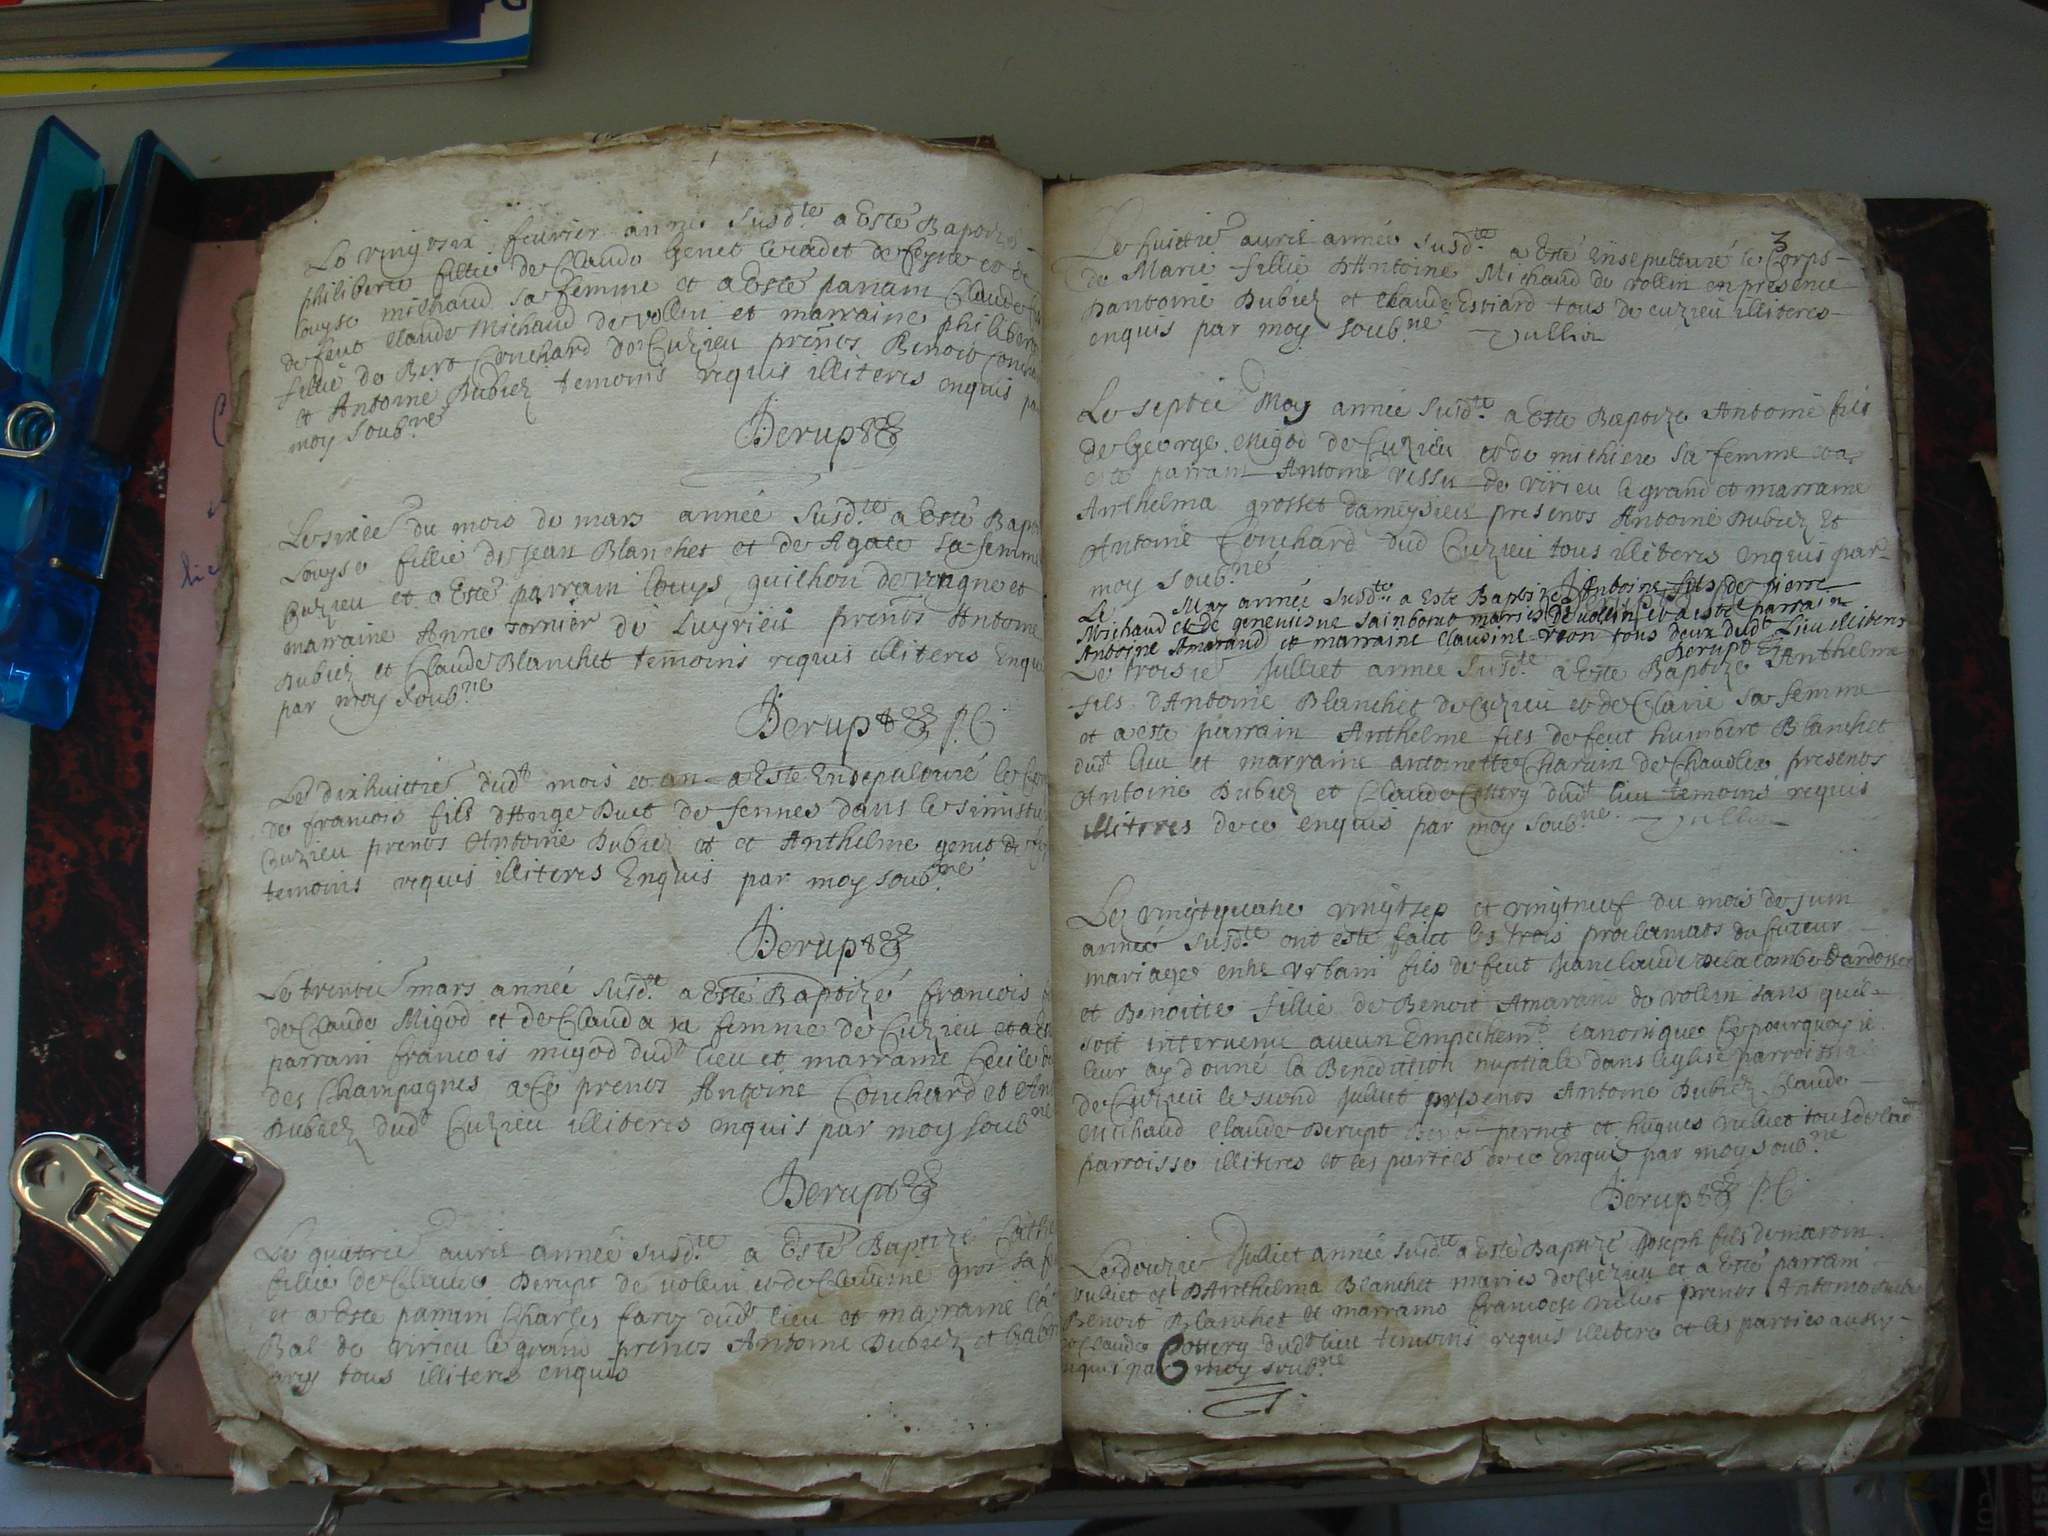 Le vingtsix feuvrier année susd.te a Esté Baptizé
philiberte fillie de Claude Genet le cadet de feyne et de
louyse michaud sa femme et a Esté parrain Claude
de feut Claude Michaud de vollin et marraine philiberte
fillie de Couchard de Cuzieu prēnts Benoit
et Antoine Dubiez temoins requis illiteres enquis par
moy soub.né
Derupt
Le sixie du mois de mars année susd.te a Esté Bapt
Louyse fillie de Jean Blanchet et de Agate sa femme
Cuzieu et a Esté parrain louys guilhon de vongne et
marraine Anne tornier de Luyrieu prēnts Antoine
Dubiez et Claude Blanchet temoins requis illiteres Enquis
par moy soub.né
Derupt P.C.
Le dixhuittie dud.t mois et an a Esté Ensepulturé le Cor
de francois fils d'Ange Buet de fennes dans le simistie
Cuzieu prēnts Antoine Dubiez et et Anthelme genet de
temoins requis illiteres Enquis par moy soub.né
Derupt
Le trentie mars année susd.te a Esté Baptizé francois
de Claude Migod et de Clauda sa femme de Cuzieu et a
parrain francois migod dud.t lieu et marraine Cecile
des Champagnes a ce prēnts Antoine Couchard et Ant
Dubiez dud.t Cuzieu illiteres enquis par moy soub.né
Derupt
Le quatrie auril année susd.te a Esté Baptizé Cathe
fillie de Claude Derupt de volein et de Claudine gros sa f
et a Esté parrain Charles fary dud.t lieu et marraine
Bal de virieu le grand prēnts Antoine Dubiez et
tous illiteres enquis
3
Le huittie auril année susd.te a Esté Ensepulturé le Corps
de Marie fillie d'Antoine Michaud de vollin en presence
d'antoine Dubiez et Claude Estiard tous de cuzieu illiteres
enquis par moy soub.né Vullin
Le septie May année susd.te a Esté Baptize Antoine fils
de George Migod de Cuzieu et de michiere sa femme et a
esté parrain Antoine vissu de virieu le grand et marraine
Anthelma grosset d'ameysieu presents Antoine Dubiez Et
Antoine Couchard dud Cuzieu tous illiteres enquis par
moy soub.né
Le May année susd.te a Esté Baptizé Antoine fils de pierre
Michaud et de genevieve mariés de vollin et a esté parrain
Antoine Amaraud et marraine Claudine tous deux dud.t Lieu illiteres
Derupt
Le troisie Julliet année susd.te a Esté Baptizé Anthelme
fils d'Antoine Blanchet de Cuzieu et de Clavie sa femme
et a esté parrain Anthelme fils de feut humbert Blanchet
dud.t lieu et marraine antoinette Charuin de Chaullex presents
Antoine Dubiez et Claude Cottery dud.t lieu temoins requis
illiteres de ce enquis par moy soub.né Vullin
Le vingtquatre vingtsep et vingtneuf du mois de juin
année susd.te ont esté faict les trois proclamats du futeur
mariage entre Vrbain fils de feut Jean Claude Delacombe d'ardosset
et Benoitte fillie de Benoit Amaraud de volein sans quil
soit intervenu aucun Empechem.t canonique Cepourquoy je
leur ay donné la Benediction nuptiale dans leglise parroissiale
de Cuzieu le second Julliet presents Antoine Dubiez Claude
Michaud Claude Derupt Benoit pernet et hugues vulliet tous de lad.t
parroisse illiteres et les parties de ce enquis par moy soub.né
Derupt P.C.
Le douzie Julliet année susd.te a Esté Baptizé Joseph fils de martin
vulliet et d'Anthelma Blanchet mariés de Cuzieu et a Esté parrain
Benoit Blanchet et marraine francoise vulliet prēnts Antoine Dubiez
et Claude Cottery dud.t lieu temoins requis illitere et les parties aussy
enquis par moy soub.né